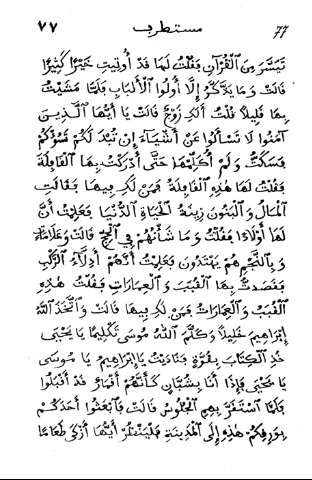 ٧٧ مستطرب 77
تَيَسَّرَ مِنَ ٱلْقُرْآنِ فَقُلْتُ لَهَا قَدْ أُوتِيتِ خَيْرًا كَثِيرًا
قَالَتْ وَمَا يَذَّكَّرُ إِلَّا أُولُوا ٱلْأَلْبَابِ فَلَمَّا مَشَيْتُ
بِهَا قَلِيلًا قُلْتُ أَلَكِ زَوْجٌ قَالَتْ يَا أَيُّهَا ٱلَّذِينَ
آمَنُوا لَا تَسْأَلُوا عَنْ أَشْيَاءَ إِنْ تُبْدَ لَكُمْ تَسُؤْكُمْ
فَسَكَتُّ وَلَمْ أُكَلِّمْهَا حَتَّى أَدْرَكْتُ بِهَا ٱلْقَافِلَةَ
فَقُلْتُ لَهَا هٰذِهِ ٱلْقَافِلَةُ فَمَنْ لَكِ فِيهَا فَقَالَتِ
ٱلْمَالُ وَٱلْبَنُونَ زِينَةُ ٱلْحَيَاةِ ٱلدُّنْيَا فَعَلِمْتُ أَنَّ
لَهَا أَوْلَادًا فَقُلْتُ وَمَا شَأْنُهُمْ فِي ٱلْحَجِّ قَالَتْ وَعَلَامَاتٍ
وَبِٱلنَّجْمِ هُمْ يَهْتَدُونَ فَعَلِمْتُ أَنَّهُمْ أَدِلَّاءُ ٱلرَّكْبِ
فَقَصَدتُّ بِهَا ٱلْقُبَبَ وَٱلْعِمَارَاتِ فَقُلْتُ هٰذِهِ
ٱلْقُبَبُ وَٱلْعِمَارَاتُ فَمَنْ لَكِ فِيهَا قَالَتْ وَٱتَّخَذَ ٱللّٰهُ
إِبْرَاهِيمَ خَلِيلًا وَكَلَّمَ ٱللّٰهُ مُوسَى تَكْلِيمًا يَا يَحْيَى
خُذِ ٱلْكِتَابَ بِقُوَّةٍ فَنَادَيْتُ يَا إِبْرَاهِيمُ يَا مُوسَى
يَا يَحْيَى فَإِذَا أَنَا بِشُبَّانٍ كَأَنَّهُمْ أَقْمَارٌ قَدْ أَقْبَلُوا
فَلَمَّا ٱسْتَقَرَّ بِهِمِ ٱلْجُلُوسُ قَالَتْ فَٱبْعَثُوا أَحَدَكُمْ
بِوَرِقِكُمْ هٰذِهِ إِلَى ٱلْمَدِينَةِ فَلْيَنْظُرْ أَيُّهَا أَزْكَى طَعَامًا